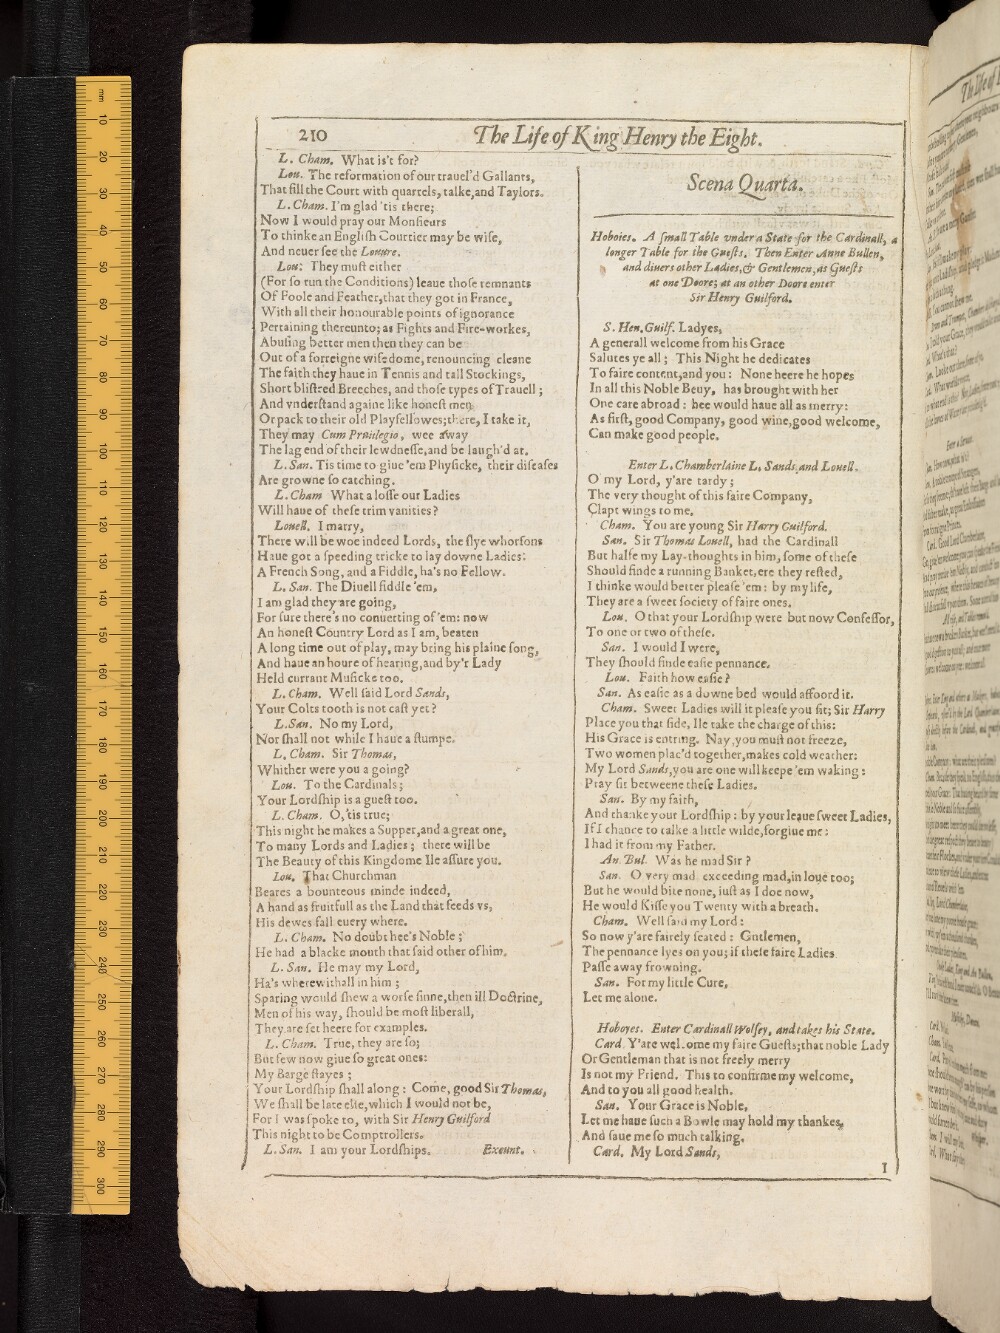 210
The Life of King Henry the Eight.
L. Cham. What is't for?
Lou. The reformation of our trauel'd Gallants,
That fill the Court with quarrels, talke, and Taylors.
L. Cham. I'm glad 'tis there;
Now I would pray our Monsieurs
To thinke an English Courtier may be wise,
And neuer see the Louure.
Lou. They must either
(For so run the Conditions) leaue those remnants
Of Foole and Feather, that they got in France,
With all their honourable points of ignorance
Pertaining thereunto; as Fights and Fire-workes,
Abusing better men then they can be
Out of a forreigne wisedome, renouncing cleane
The faith they haue in Tennis and tall Stockings,
Short blistred Breeches, and those types of Trauell;
And vnderstand againe like honest men,
Or pack to their old Playfellowes; there, I take it,
They may Cum Priuilegio, wee away
The lag end of their lewdnesse, and be laugh'd at.
L. San. Tis time to giue 'em Physicke, their diseases
Are growne so catching.
L. Cham What a losse our Ladies
Will haue of these trim vanities?
Louell. I marry,
There will be woe indeed Lords, the slye whorsons
Haue got a speeding tricke to lay downe Ladies:
A French Song, and a Fiddle, ha's no Fellow.
L. San. The Diuell fiddle 'em,
I am glad they are going,
For sure there's no conuerting of 'em: now
An honest Country Lord as I am, beaten
A long time out of play, may bring his plaine song,
And haue an houre of hearing, and by'r Lady
Held currant Musicke too.
L. Cham. Well said Lord Sands,
Your Colts tooth is not cast yet?
L. San. No my Lord,
Nor shall not while I haue a stumpe.
L. Cham. Sir Thomas,
Whither were you a going?
Lou. To the Cardinals;
Your Lordship is a guest too.
L. Cham. O, 'tis true;
This night he makes a Supper, and a great one,
To many Lords and Ladies; there will be
The Beauty of this Kingdome Ile assure you.
Lou. That Churchman
Beares a bounteous minde indeed,
A hand as fruitfull as the Land that feeds vs,
His dewes fall euery where.
L. Cham. No doubt hee's Noble;
He had a blacke mouth that said other of him.
L. San. He may my Lord,
Ha's wherewithall in him;
Sparing would shew a worse sinne, then ill Doctrine,
Men of his way, should be most liberall,
They are set heere for examples.
L. Cham. True, they are so;
But few now giue so great ones:
My Barge stayes;
Your Lordship shall along: Come, good Sir Thomas,
We shall be late else, which I would not be,
For I was spoke to, with Sir Henry Guilford
This night to be Comptrollers.
L. San. I am your Lordships. Exeunt.
Scena Quarta.
Hoboies. A small Table vnder a State for the Cardinall, a
longer Table for the Guests. Then Enter Anne Bullen,
and diuers other Ladies, & Gentlemen, as Guests
at one Doore; at an other Doore enter
Sir Henry Guilford.
S. Hen. Guilf. Ladyes,
A generall welcome from his Grace
Salutes ye all; This Night he dedicates
To faire content, and you: None heere he hopes
In all this Noble Beuy, has brought with her
One care abroad: hee would haue all as merry:
As first, good Company, good wine, good welcome,
Can make good people.
Enter L. Chamberlaine L. Sands, and Louell.
O my Lord, y'are tardy;
The very thought of this faire Company,
Clapt wings to me.
Cham. You are young Sir Harry Guilford.
San. Sir Thomas Louell, had the Cardinall
But halfe my Lay-thoughts in him, some of these
Should finde a running Banket, ere they rested,
I thinke would better please 'em: by my life,
They are a sweet society of faire ones.
Lou. O that your Lordship were but now Confessor,
To one or two of these.
San. I would I were,
They should finde easie pennance.
Lou. Faith how easie?
San. As easie as a downe bed would affoord it.
Cham. Sweet Ladies will it please you sit; Sir Harry
Place you that side, Ile take the charge of this:
His Grace is entring. Nay, you must not freeze,
Two women plac'd together, makes cold weather:
My Lord Sands, you are one will keepe 'em waking:
Pray sit betweene these Ladies.
San. By my faith,
And thanke your Lordship: by your leaue sweet Ladies,
If I chance to talke a little wilde, forgiue me:
I had it from my Father.
An. Bul. Was he mad Sir?
San. O very mad, exceeding mad, in loue too;
But he would bite none, iust as I doe now,
He would Kisse you Twenty with a breath.
Cham. Well said my Lord:
So now y'are fairely seated: Gntlemen,
The pennance lyes on you; if these faire Ladies
Passe away frowning.
San. For my little Cure,
Let me alone.
Hoboyes. Enter Cardinall Wolsey, and takes his State.
Card. Y'are welcome my faire Guests; that noble Lady
Or Gentleman that is not freely merry
Is not my Friend. This to confirme my welcome,
And to you all good health.
San. Your Grace is Noble,
Let me haue such a Bowle may hold my thankes,
And saue me so much talking.
Card. My Lord Sands,
I
mm
10
20
30
40
50
60
70
80
90
100
110
120
130
140
150
160
170
180
190
200
210
220
230
240
250
260
270
280
290
300